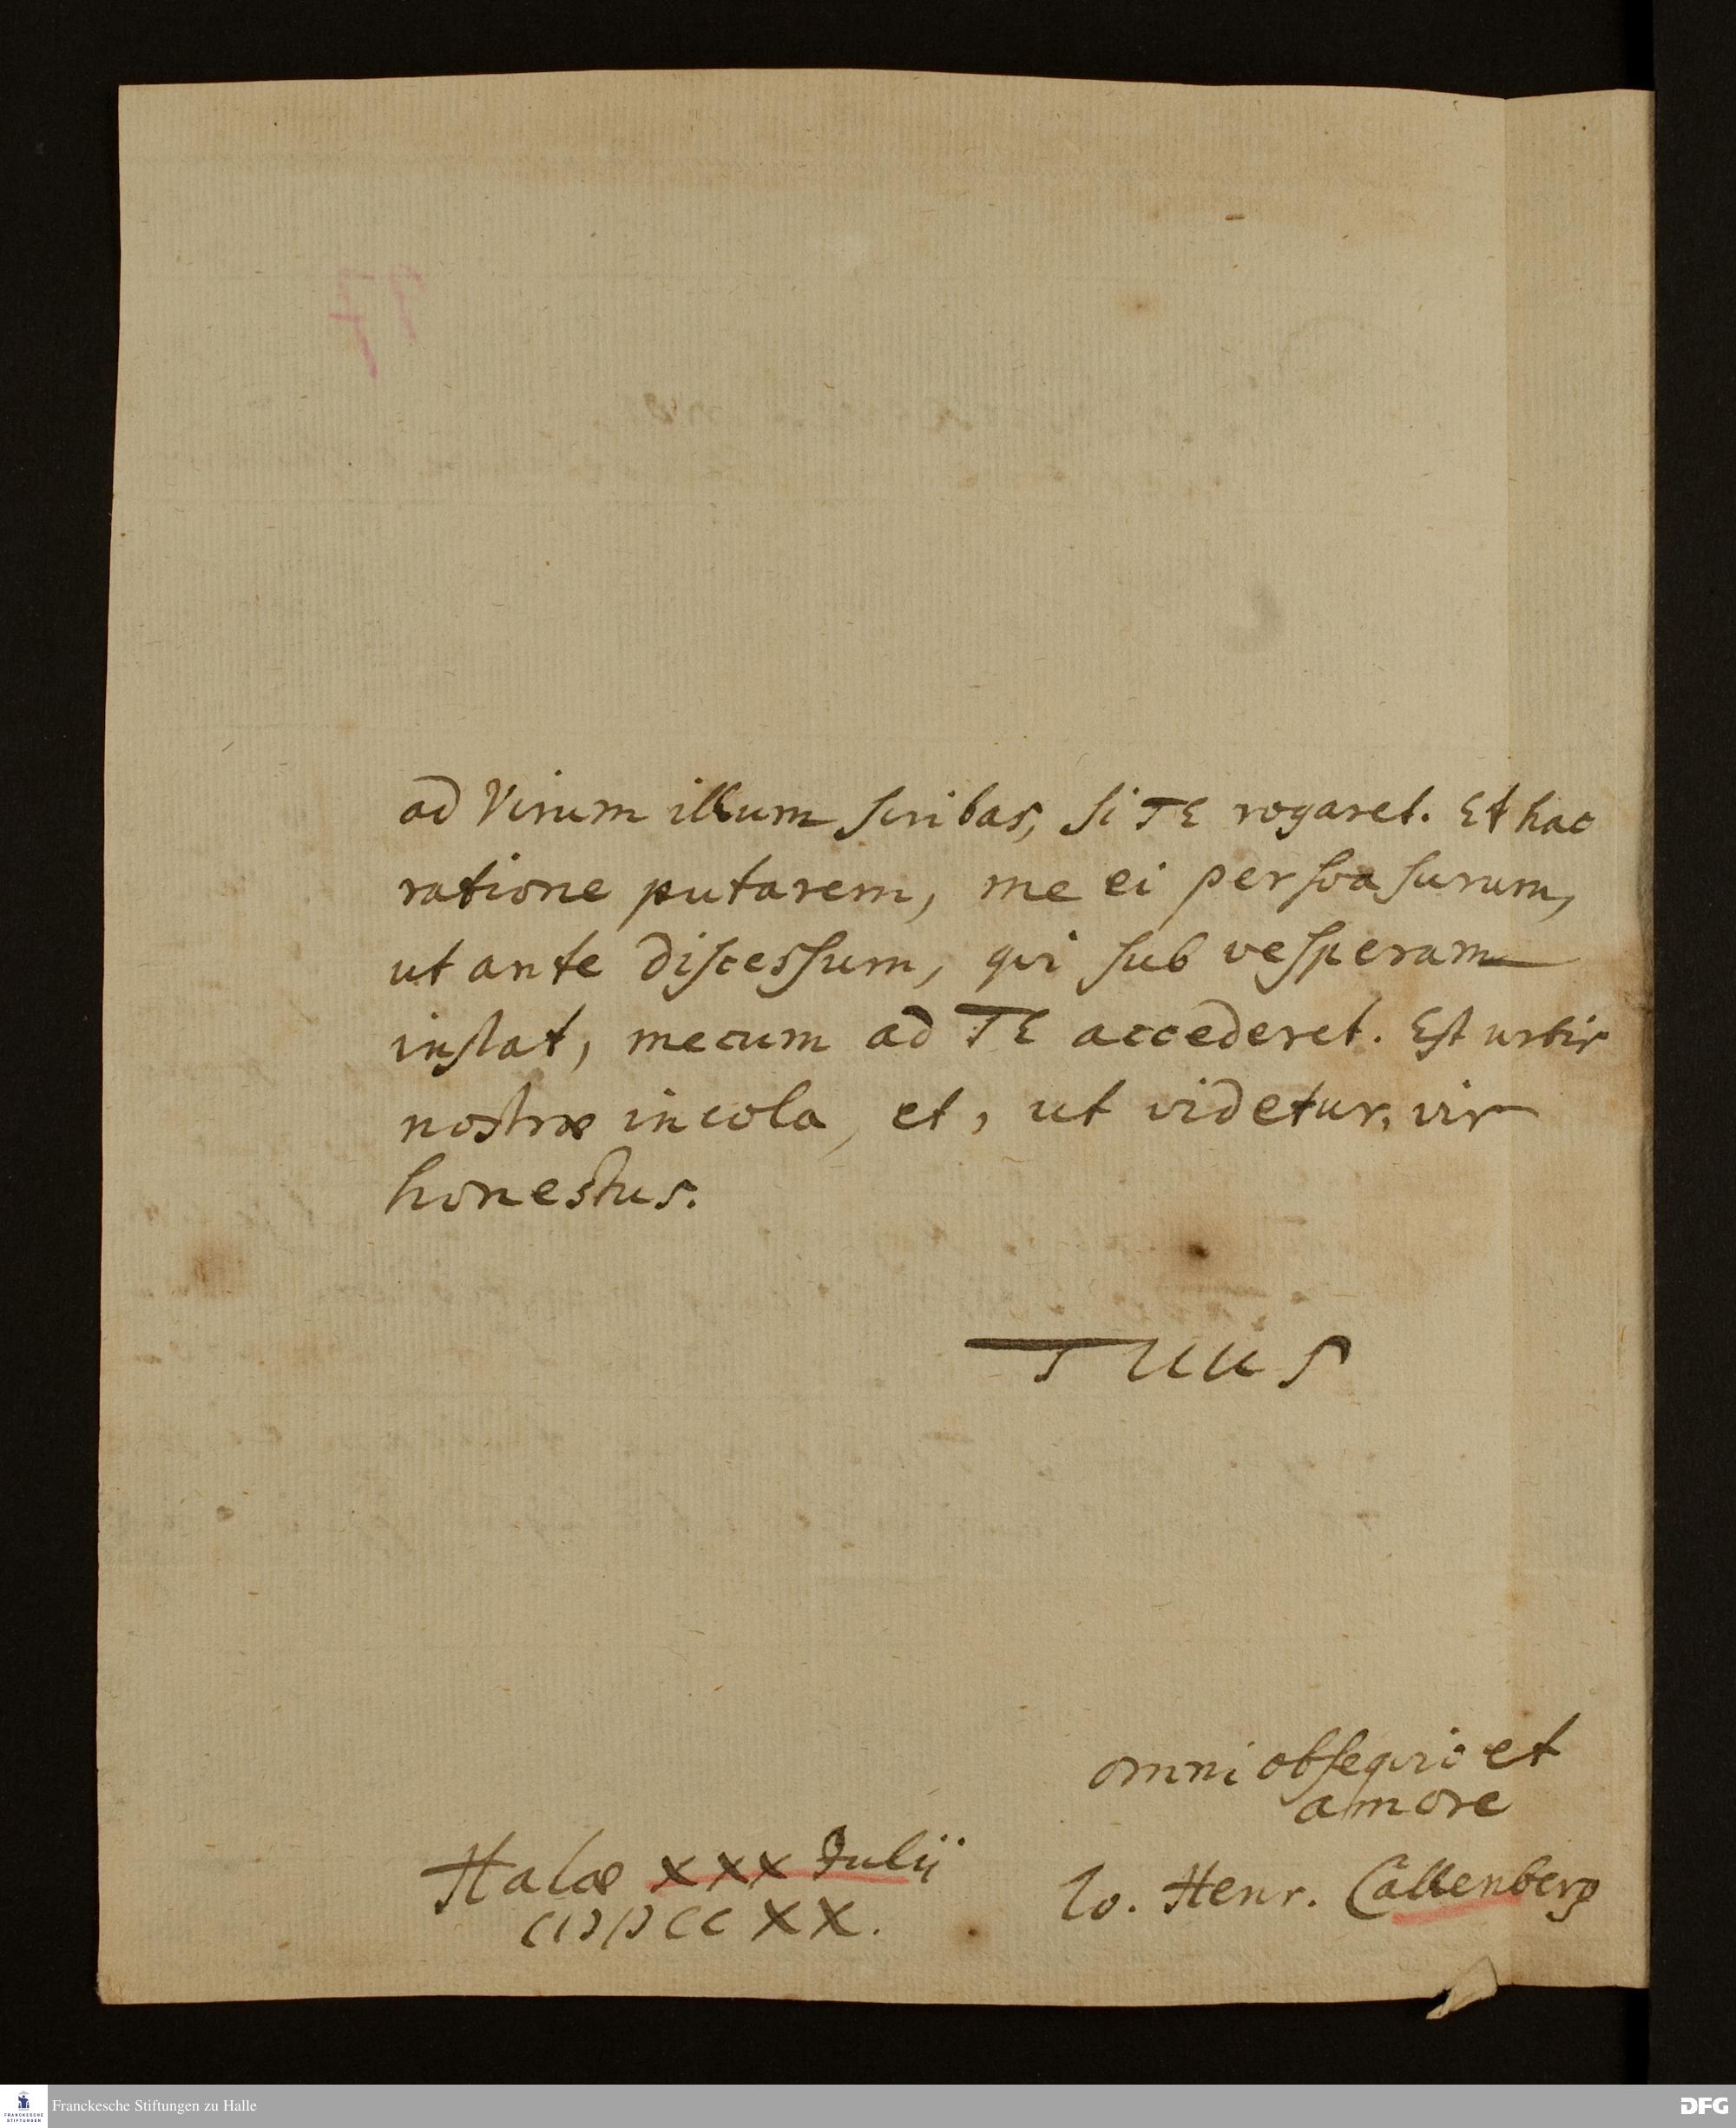 ad Virum illum scribas, si TE rogaret. Et hac
ratione putarem, me ei persvasurum,
ut ante discessum, qvi sub vesperam
instat, mecum ad TE accederet. Est urbis
nostræ incola, et, ut videtur, vir
honestus.
Tuus
omni obseqvio et
amore
Halæ XXX Julii
CIƆIƆCCXX.
Io. Henr. Callenberg
Franckesche Stiftungen zu Halle
FRANCKESCHE
STIFTUNGEN
DFG